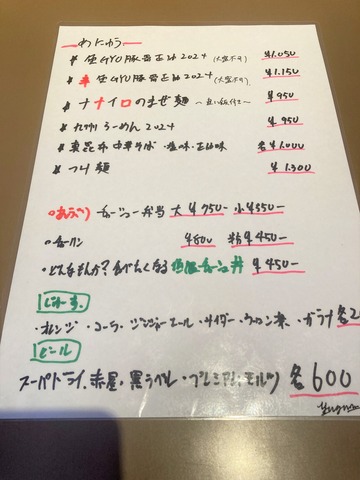 めにゅう
* 魚GYO豚骨正油2024 (大盛不可) ¥1.050
* 辛 魚GYO豚骨正油2024 (大盛不可) ¥1.150
* ナナイロのまぜ麺 ¥950
* らーめん2024 ¥950
* 中華そば・塩味・正油味 各¥1.000
* つけ麺 ¥1.300
チャーシュー弁当 大¥750- 小¥350-
・チャーハン ¥800 ¥450-
・どんなもんか?食べたくなる チャーシュー丼 ¥450-
じゅーす
・オレンジ・コーラ・ジンジャーエール・サイダー・ウーロン茶・ガラナ 各2
ビール
スーパードライ・赤星・黒ラベル・プレミアムモルツ 各600